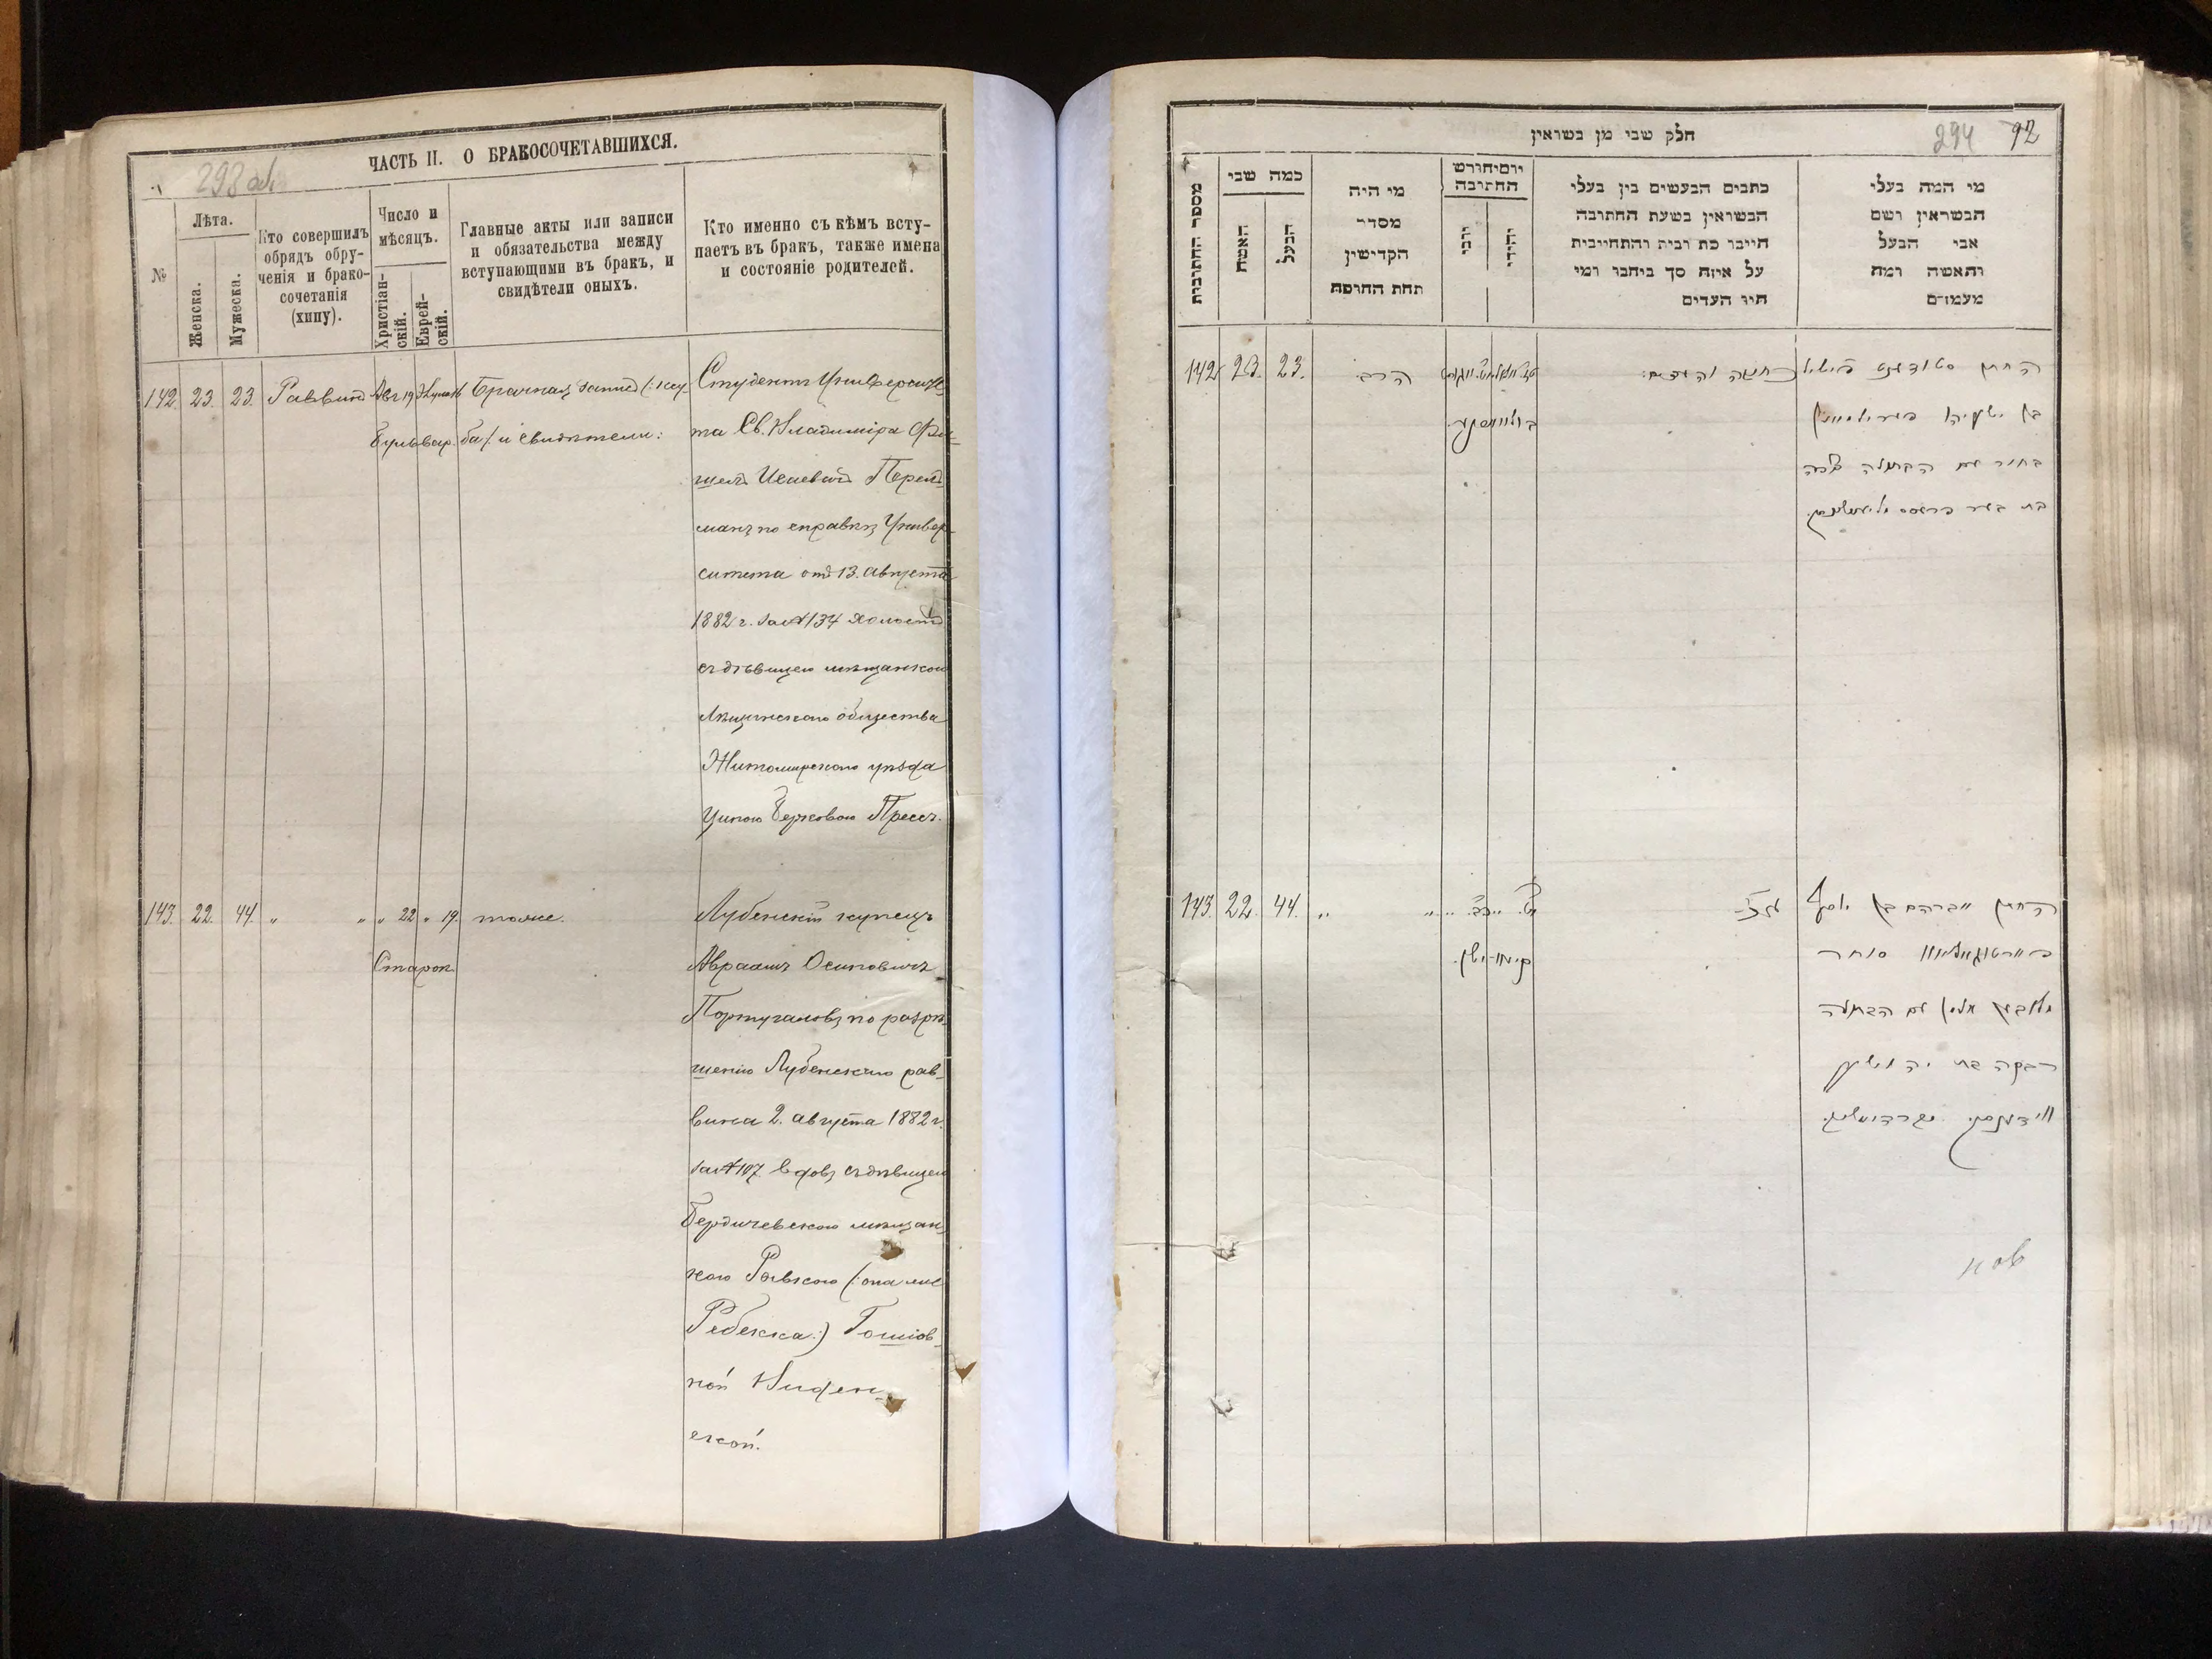 298 об.
ЧАСТЬ II. О БРАКОСОЧЕТАВШИХСЯ.
№
Лѣта.
Женска.
Мужеска.
Кто совершилъ
обрядъ обру-
ченія и брако-
сочетанія
(хипу).
Число и
мѣсяцъ.
Христіан-
скій.
Еврей-
скій.
Главные акты или записи
и обязательства между
вступающими въ бракъ, и
свидѣтели оныхъ.
Кто именно съ кѣмъ всту-
паетъ въ бракъ, также имена
и состояніе родителей.
142. 23. 23. Раввинъ Авг 19
Бульвар.
Брачная запись (: кту-
ба /. и свидѣтели:
Студентъ Университе-
та Св. Владиміра Фи-
шель Исаевичъ Перель
манъ по справкѣ Универ-
ситета отъ 13. августа
1882 г. за № 134 холостъ
съ дѣвицею мѣщанкою
общества
Житомирскаго уѣзда
Ципою Берковою Прессъ.
143. 22. 44. " " " 22 " 19. тоже.
Старок.
Лубенскій купецъ
Авраамъ Осиповичъ
Португаловъ по разрѣ-
шенію Лубенскаго рав-
вина 2. августа 1882 г.
за № 107 вдовъ съ дѣвицею
Бердичевскою мѣщан-
кою Ривкою (: она же
Ребекка :) Гошіов-
ной Виден-
ской.
294 92
חלק שני מן נשואין
מספר החתונות
כמה שני
האשה
הבעל
מי היה
מסדר
הקדישין
תחת החופה
יום וחודש
החתונה
כתבים הנעשים בין בעלי
הנשואין בשעת החתונה
היינו כת ובית והתחייבית
על איזה סך ביחבו ומי
היו העדים
מי המה בעלי
הנשואין ושם
אבי הבעל
והאשה ומה
מעמדם
142 23. 23. הרב
החתן סטודענט פישל
בן ישעיה פערילמאן
בחור עם הבתולה ציפה
143. 22. 44. " "
החתן אברהם בן יוסף
פארטוגאלאוו סוחר
מלובען אלמן עם הבתולה
רבקה בת יהושע